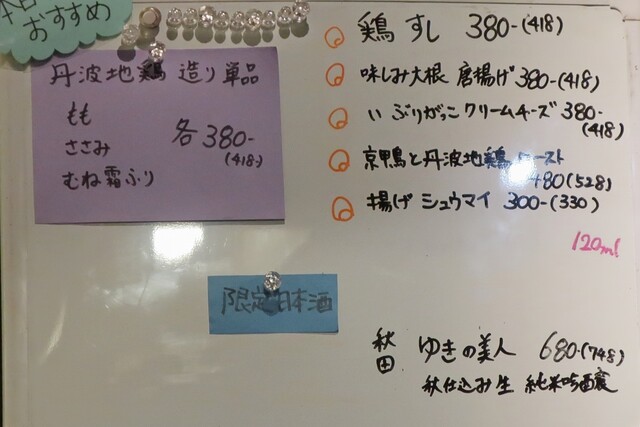 おすすめ
丹波地鶏 造り単品
もも
ささみ
むね霜ふり
各380-
(418-)
鶏すし 380-(418)
味しみ大根 唐揚げ 380-(418)
いぶりがっこクリームチーズ 380-
(418)
京鴨と丹波地鶏
480(528)
揚げシュウマイ 300-(330)
120ml
限定日本酒
秋田 ゆきの美人 680-(748)
秋仕込み生 純米吟醸